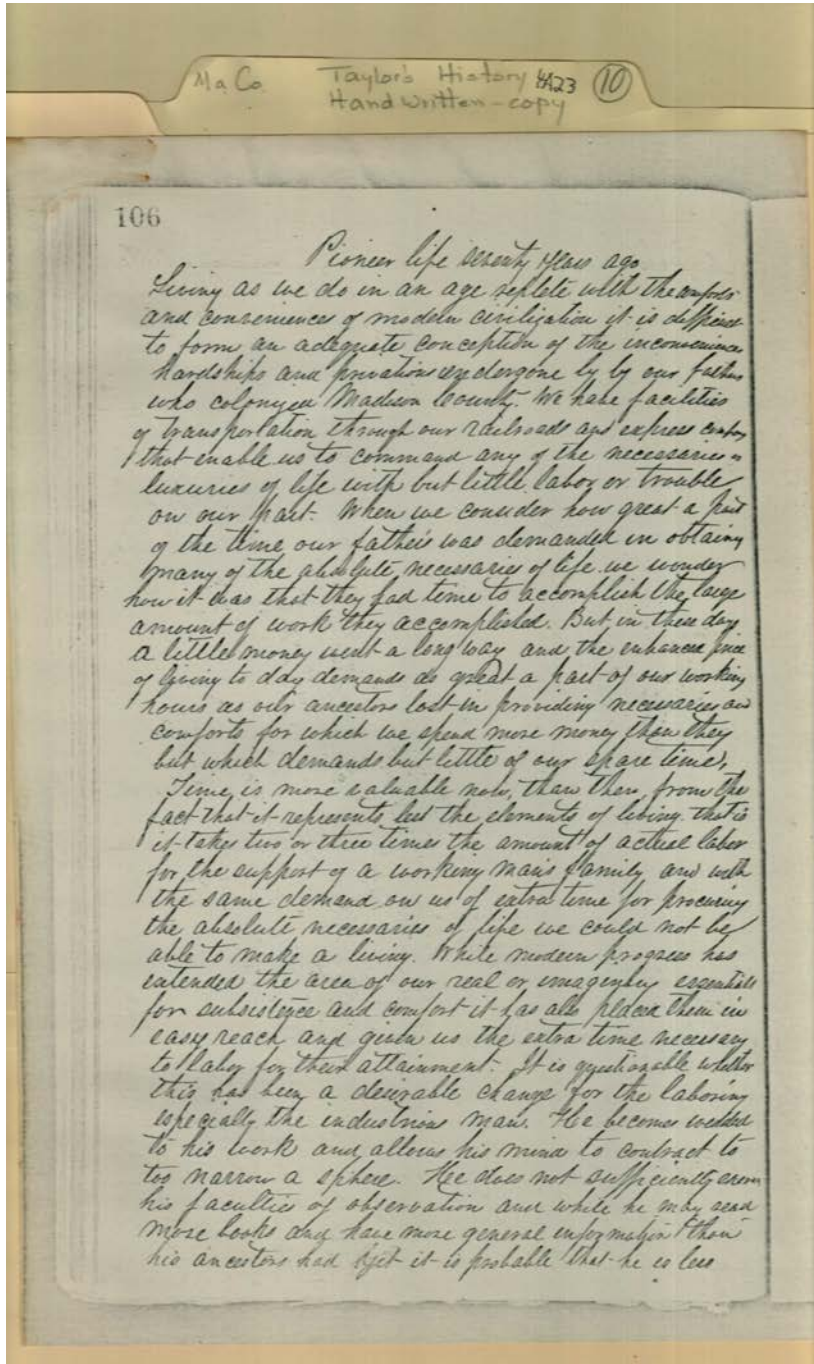 Ma Co. Taylor's History 4A23 10
Hand written - copy
106
Pioneer life seventy years ago
Living as we do in an age replete with the comforts
and conveniences of modern civilization it is difficult
to form an adequate conception of the inconveniences
hardships and privations undergone by by our fathers
who colonized Madison County. We have facilities
of transportation through our railroads and express
that enable us to command any of the necessaries or
luxuries of life with but little labor or trouble
on our part. When we consider how great a part
of the time our fathers was demanded in obtaining
many of the absolute necessaries of life we wonder
how it was that they had time to accomplish the large
amount of work they accomplished. But in these days
a little money went a long way and the enhanced price
of living to day demands as great a part of our working
hours as our ancestors lost in providing necessaries and
comforts for which we spend more money than they
but which demands but little of our spare time,
Time, is more valuable now, than then, from the
fact that it represents less the elements of living. that is
it takes two or three times the amount of actual labor
for the support of a working man's family and with
the same demand on us of extra time for procuring
the absolute necessaries of life we could not be
able to make a living. While modern progress has
extended the area of our real or imaginary essentials
for subsistence and comfort it has also placed them in
easy reach and given us the extra time necessary
to labor for their attainment. It is questionable whether
this has been a desirable change for the laboring
especially the industrious man. He becomes wedded
to his work and allows his mind to contract to
too narrow a sphere. He does not sufficiently
his faculties of observation and while he may read
more books and have more general information than
his ancestors had yet it is probable that he is less